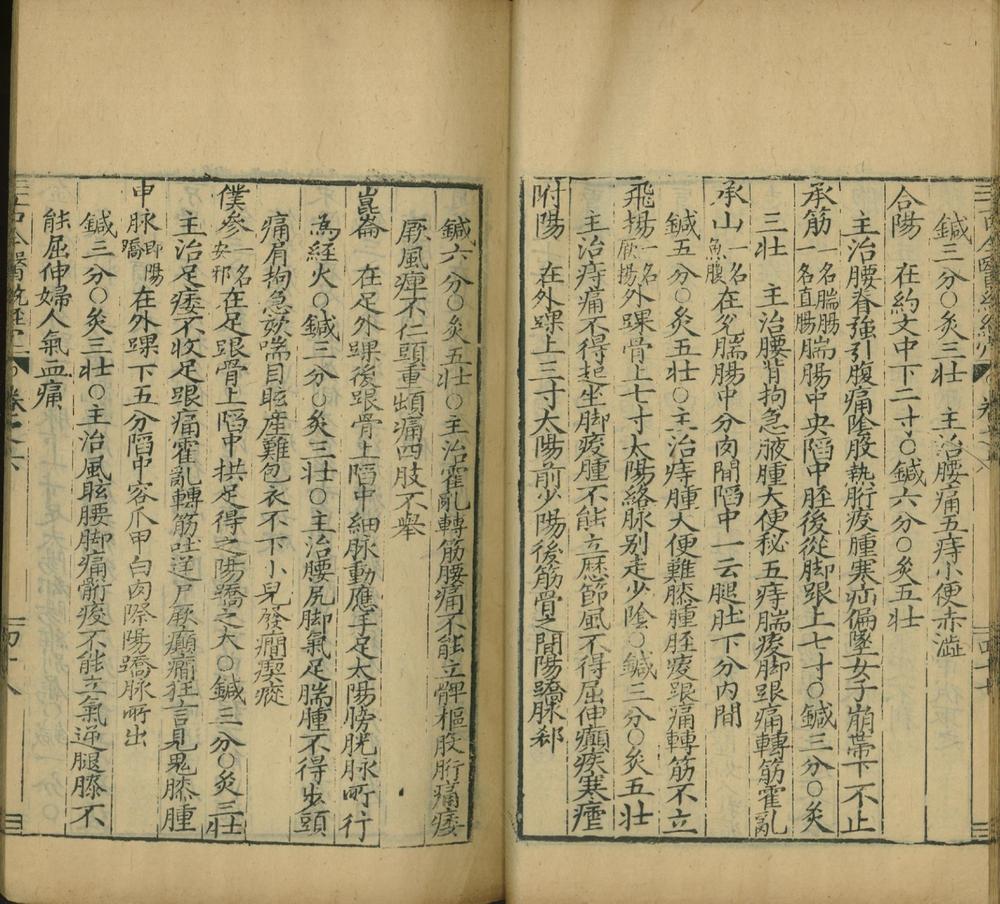 鍼三分○灸三壯　主治腰痛五痔小便赤澁
合陽　在約文中下二寸○鍼六分○灸五壯
主治腰脊強引腹痛陰股熱胻痠腫寒疝偏墜女子崩帶下不止
承筋一名腨腸一名直腸腨腸中央陷中脛後從脚跟上七寸○鍼三分○灸
三壯　主治腰背拘急腋腫大便秘五痔腨痠脚跟痛轉筋霍亂
承山一名魚腹在兌腨腸中分肉間陷中一云腿肚下分內間
鍼五分○灸五壯○主治痔腫大便難膝腫脛痠跟痛轉筋不立
飛揚一名厥揚外踝骨上七寸太陽絡脉别走少陰○鍼三分○灸五壯
主治痔痛不得起坐脚痠腫不能立歷節風不得屈伸癲疾寒瘧
附陽　在外踝上三寸太陽前少陽後筋骨之間陽蹻脉郄
鍼六分○灸五壯○主治霍亂轉筋腰痛不能立髀樞股胻痛痿
厥風痺不仁頭重䪼痛四肢不舉
崑崙　在足外踝後跟骨上陷中細脉動應手足太陽膀胱脉所行
為經火○鍼三分○灸三壯○主治腰尻脚氣足腨腫不得步頭
痛肩拘急欬喘目眩產難包衣不下小兒發癇瘈瘲
僕參一名安邪在足跟骨上陷中拱足得之陽蹻之夲○鍼三分○灸三壯
主治足痿不收足跟痛霍亂轉筋吐逆尸厥癲癇狂言見鬼膝腫
申脉即陽蹻在外踝下五分陷中容爪甲白肉際陽蹻脉所出
鍼三分○灸三壯○主治風眩腰脚痛胻痠不能立氣逆腿膝不
能屈伸婦人氣血痛
卷之
四十八
四十七